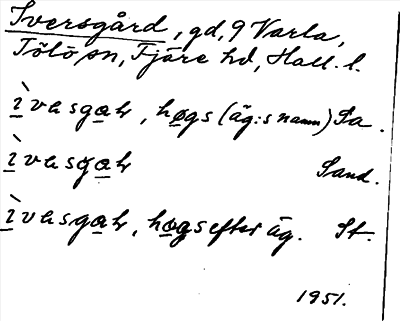 Iversgård, gd, 9 Varla,
Tölö sn, Fjäre hd, Hall. l.
ìvasgaʀ, høgs (äg:s namn) Sa.
ìvasgaʀ Sand.
ìvasgaʀ, høgs efter äg. St.
1951.